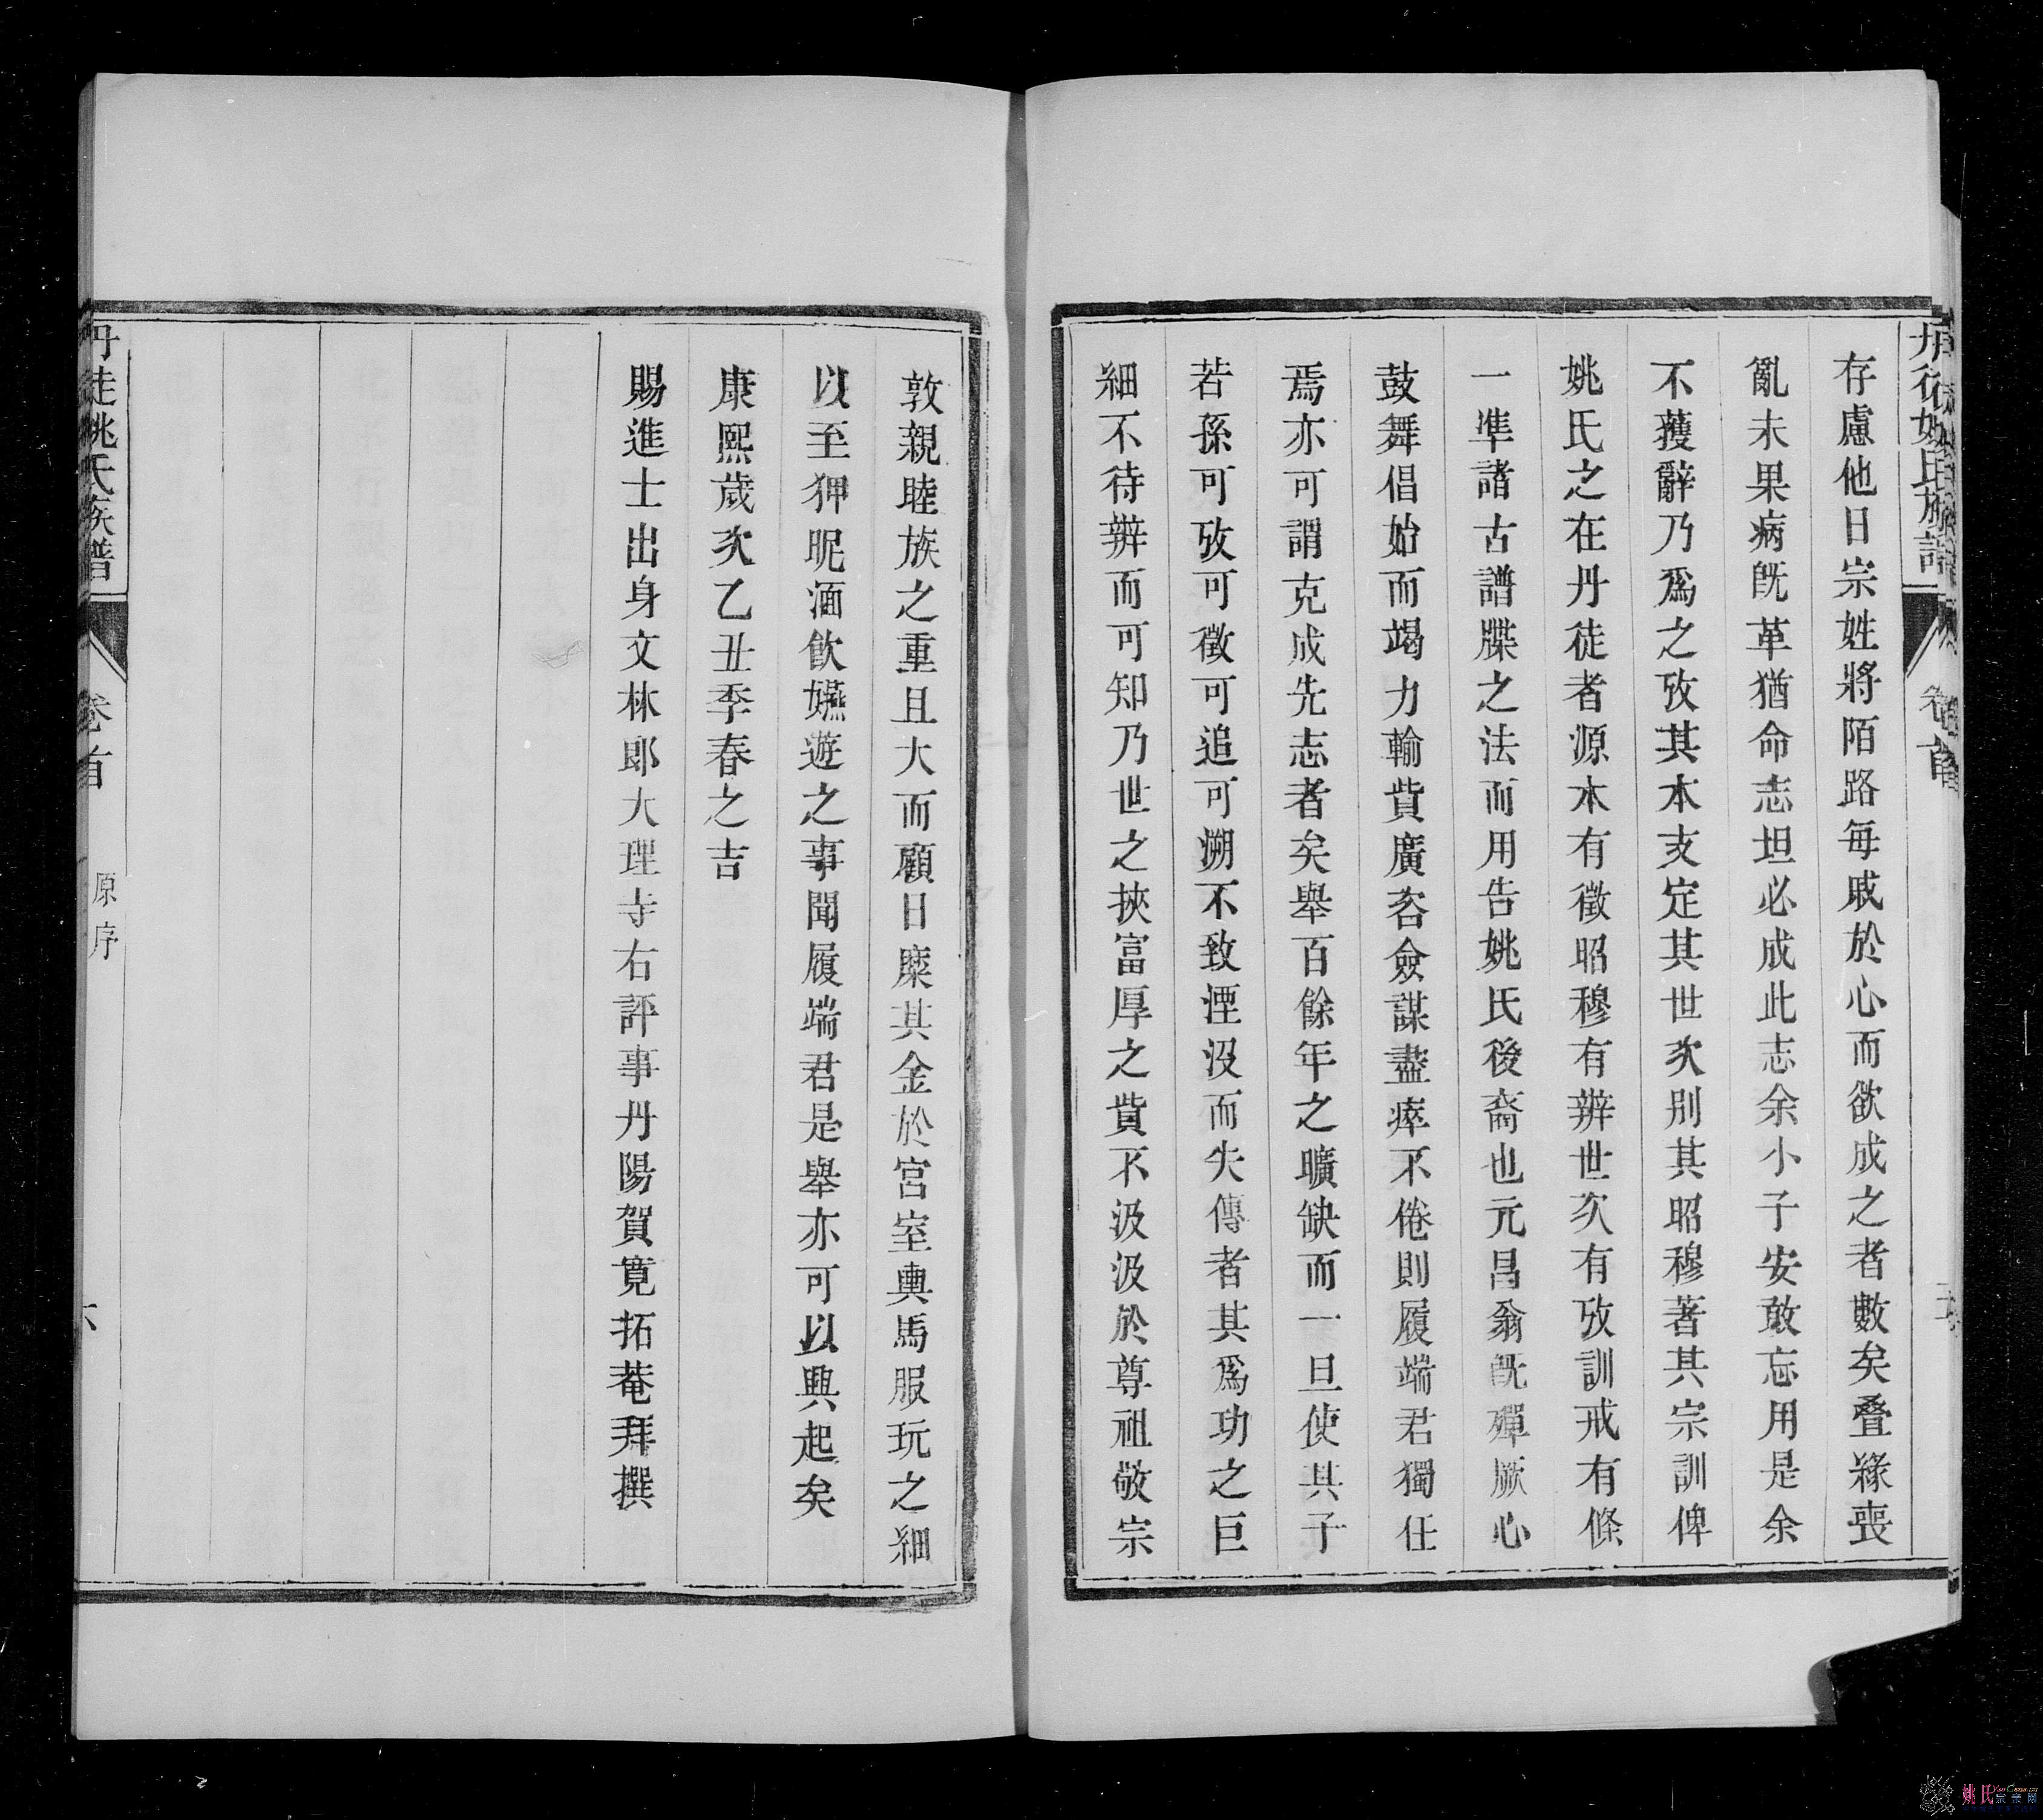 丹徒姚氏族譜
卷首
存慮他日宗姓將陌路每戚於心而欲成之者數矣叠緣喪
亂未果病旣革猶命志坦必成此志余小子安敢忘用是余
不獲辭乃爲之攷其本支定其世次別其昭穆著其宗訓俾
姚氏之在丹徒者源本有徵昭穆有辨世次有攷訓戒有條
一準諸古譜牒之法而用告姚氏後裔也元昌翁旣殫厥心
鼓舞倡始而竭力輸貲廣咨僉謀盡瘁不倦則履端君獨任
焉亦可謂克成先志者矣舉百餘年之曠缺而一旦使其子
若孫可攷可徵可追可溯不致湮沒而失傳者其爲功之巨
細不待辨而可知乃世之挾富厚之貲不汲汲於尊祖敬宗
敦親睦族之重且大而顧日糜其金於宮室輿馬服玩之細
以至狎昵湎飲嬿遊之事聞履端君是舉亦可以興起矣
康熙歲次乙丑季春之吉
賜進士出身文林郎大理寺右評事丹陽賀寬拓菴拜撰
丹徒姚氏族譜
卷首
原序
六
姚氏宗亲网